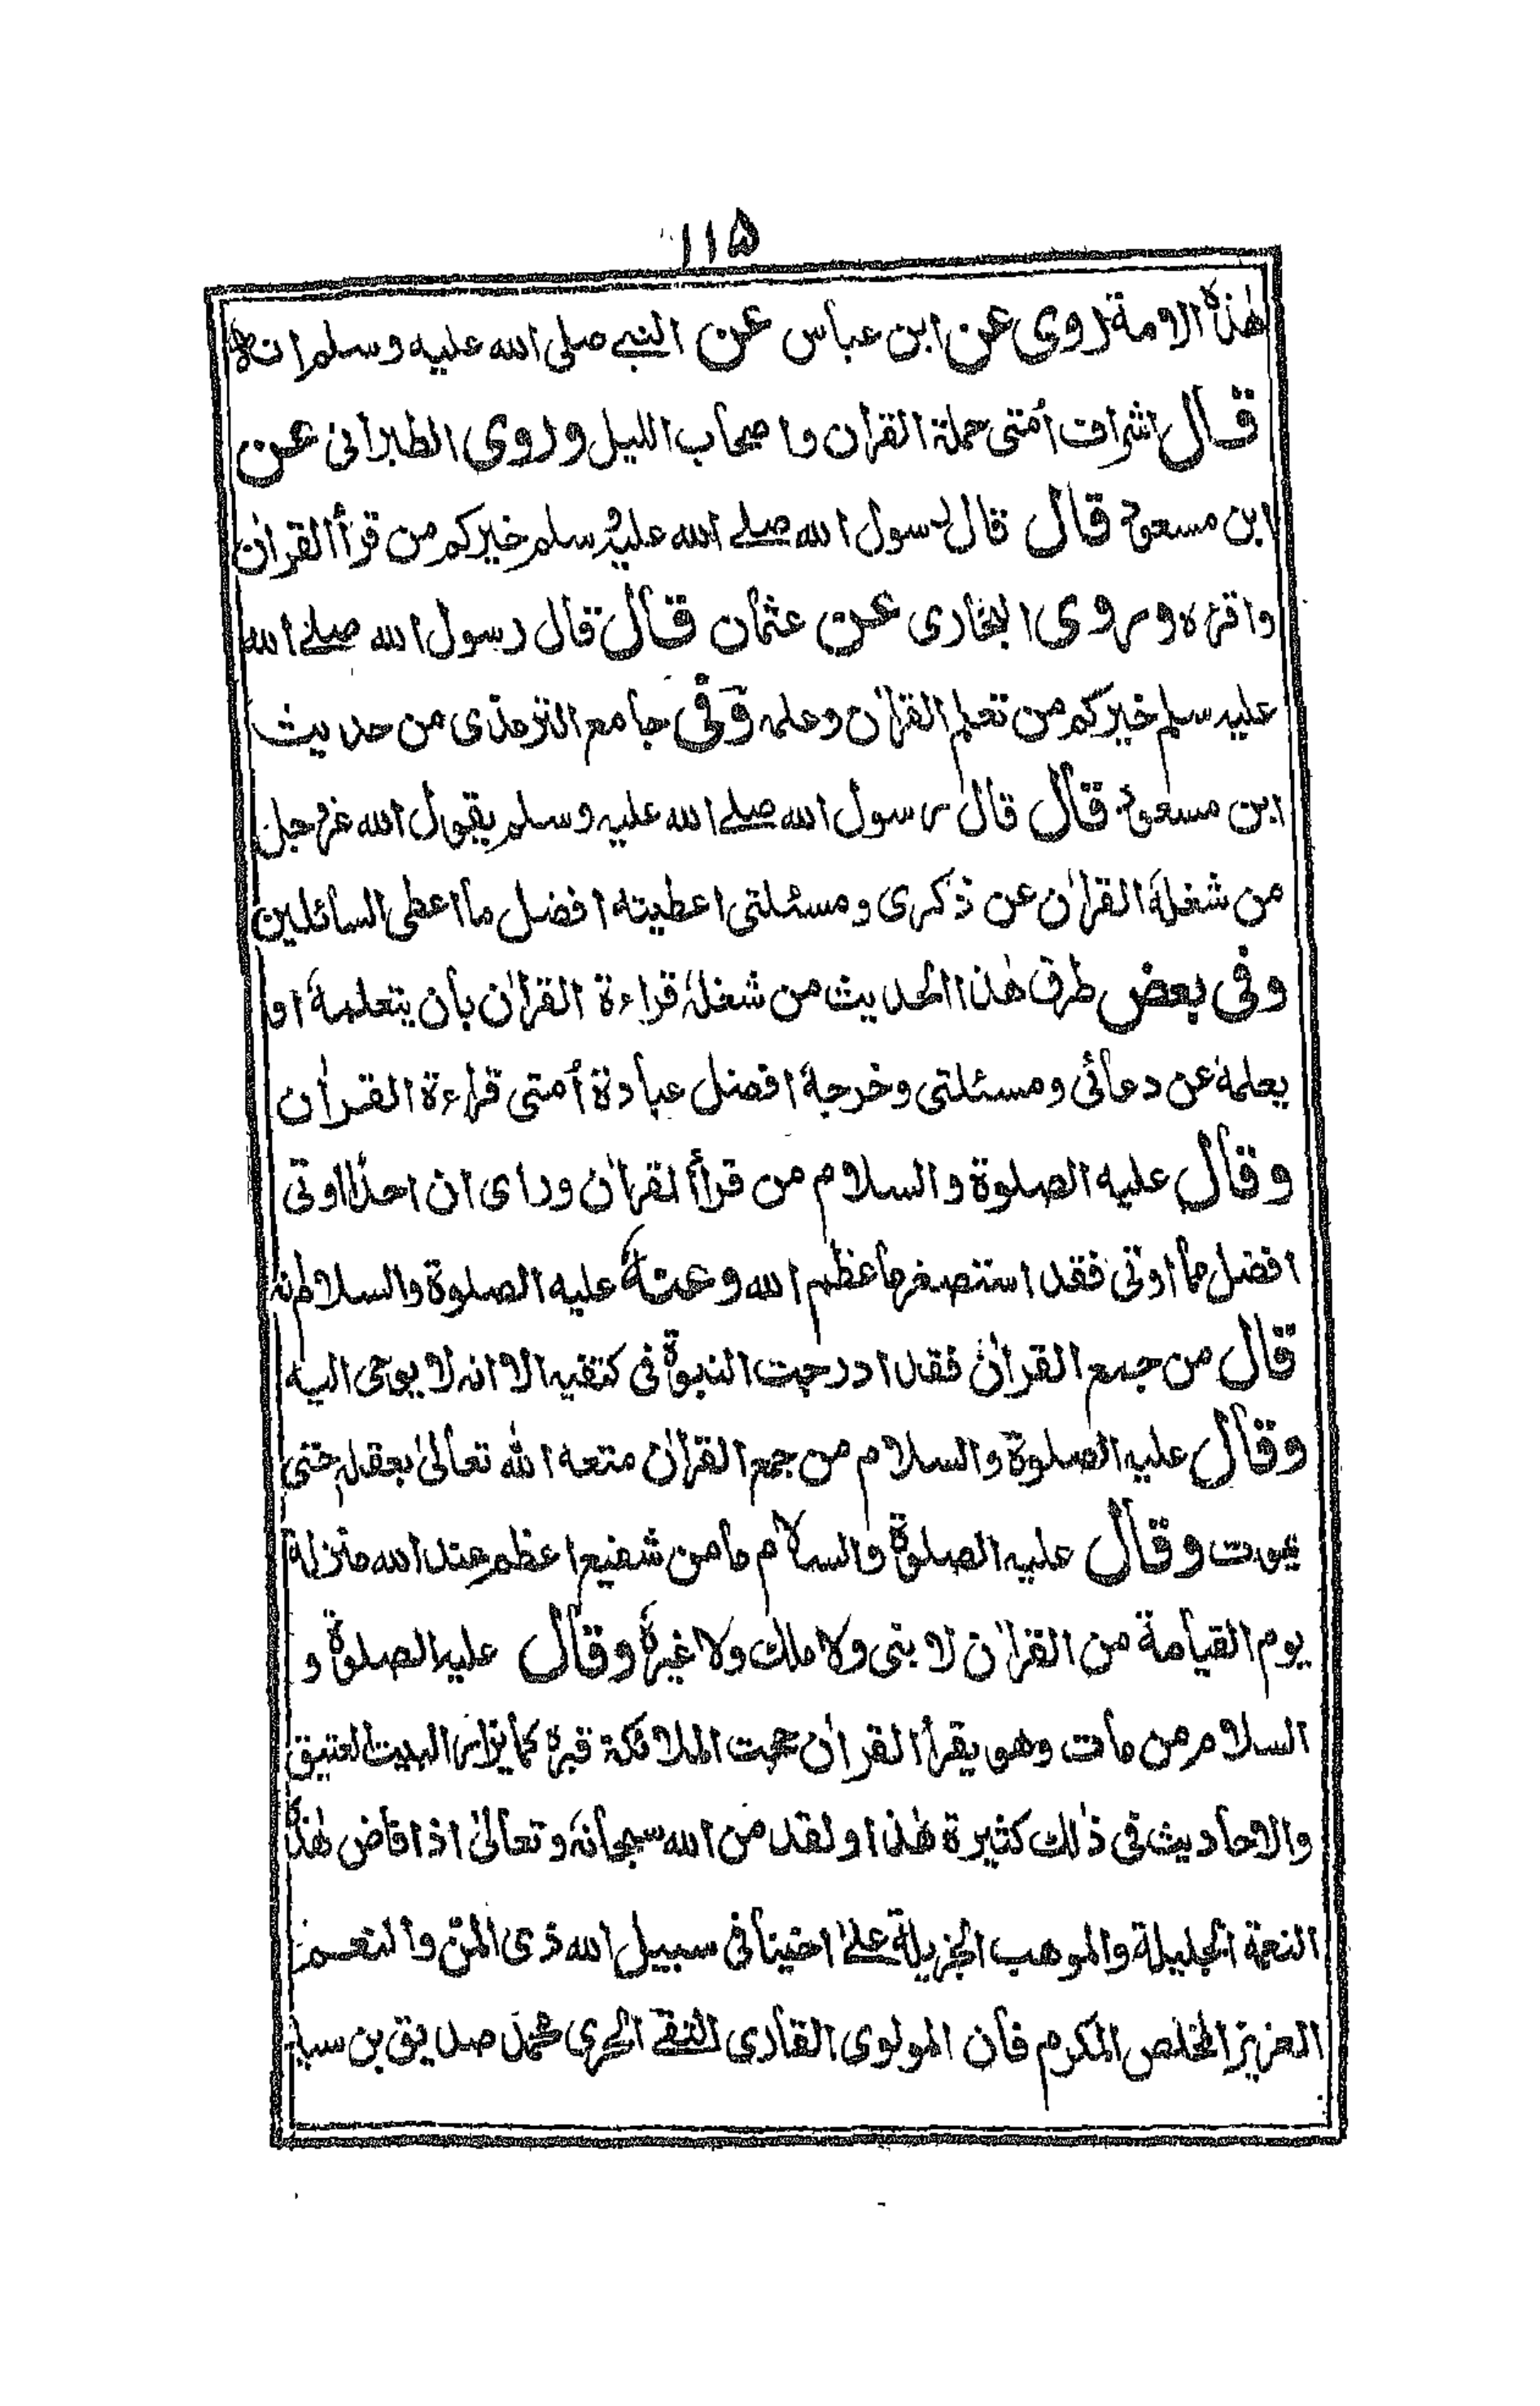 ۱۱۵
هٰذه الامة روى عن ابن عباس عن النبي صلى الله عليه وسلم انه
قال اشراف أمتى حملة القران واصحاب الليل وروى الطبرانى عن
ابن مسعود قال قال رسول الله صلے الله عليه وسلم خيركم من قرأ القراٰن
واقره وروى البخارى عن عثمان قال قال رسول الله صلے الله
عليه وسلم خيركم من تعلم القراٰن وعلمه وفى جامع الترمذى من حديث
ابن مسعود قال قال رسول الله صلے الله عليه وسلم يقول الله عز وجل
من شغله القراٰن عن ذكرى ومسئلتى اعطيته افضل ما اعطى السائلين
وفى بعض طرق هٰذا الحديث من شغله قراءة القراٰن بأن يتعلمه او
يعلمه عن دعائى ومسئلتى وخرجه افضل عبادة أمتى قراءة القراٰن
وقال عليه الصلوة والسلام من قرأ القراٰن وراى ان احدًا اوتى
افضل مما اوتى فقد استصغر ما عظم الله وعنه عليه الصلوة والسلام انه
قال من جمع القراٰن فقد ادرجت النبوة فى كتفيه الا انه لا يوحى اليه
وقال عليه الصلوة والسلام من جمع القراٰن متعه الله تعالىٰ بعقله حتى
يموت وقال عليه الصلوة والسلام ما من شفيع اعظم عند الله منزلة
يوم القيامة من القراٰن لا نبى ولا ملك ولا غيره وقال عليه الصلوة و
السلام من مات وهو يقرأ القراٰن حجت الملائكة قبره كما يزار البيت العتيق
والاحاديث فى ذٰلك كثيرة هٰذا ولقد من الله سبحانه وتعالىٰ اذ افاض هٰذه
النعمة الجليلة والموهب الجزيلة علےٰ اخينا فى سبيل الله ذى المن والنعم
العزيز المخلص المكرم فان المولوى القارى التقے الحرى محمد صديق بن سيد